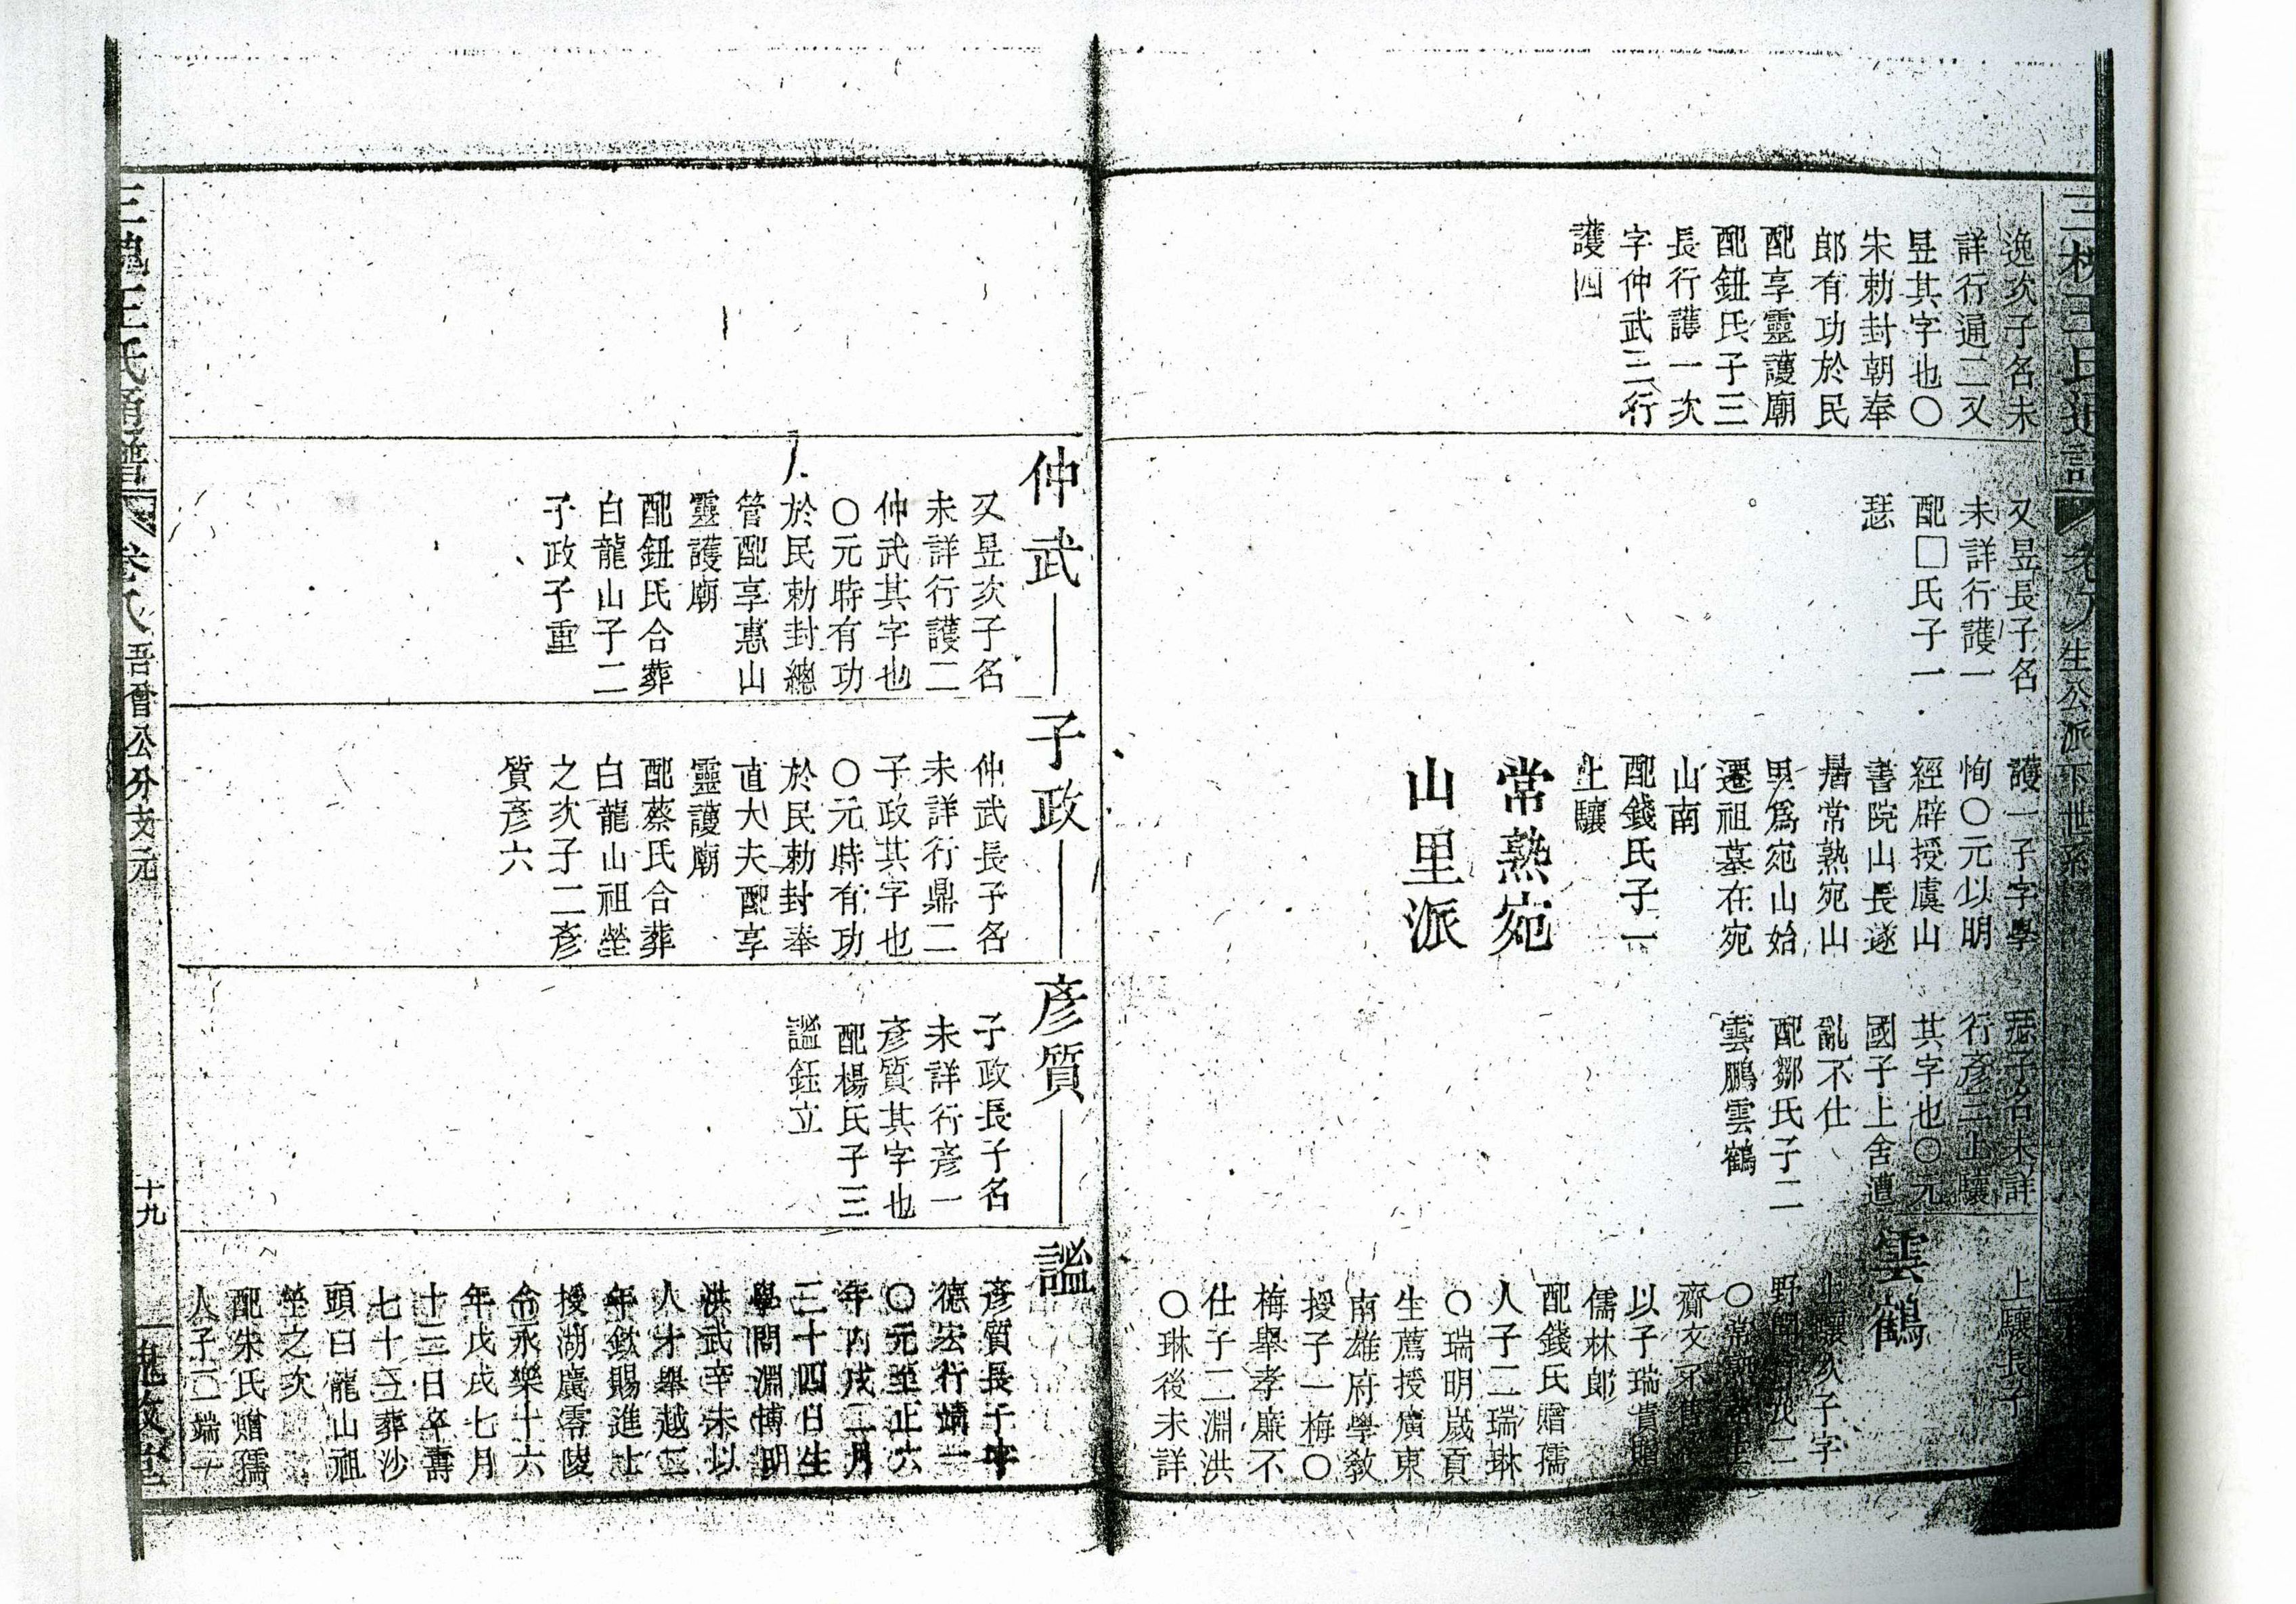 三槐王氏通譜
卷八
生公派下世系
逸次子名未
詳行通二又
昱其字也〇
朱勅封朝奉
郎有功於民
配享靈護廟
配鈕氏子三
長行護一次
字仲武三行
護四
又昱長子名
未詳行護一
配□氏子一
惄
護一子字學
恂〇元以明
經辟授虞山
書院山長遂
居常熟宛山
男為宛山始
遷祖墓在宛
山南
配錢氏子一
上驤
常熟宛
山里派
子名未詳
行彥三上驤
其字也〇元
國子上舍遭
亂不仕
配鄒氏子二
雲鵬雲鶴
上驤長子
雲鶴
上驤次子字
野
〇常
齋文
以子瑞貴贈
儒林郎
配錢氏贈孺
人子二瑞琳
〇瑞明歲貢
生薦授廣東
南雄府學教
授子一梅〇
梅舉孝廉不
仕子二淵洪
〇琳後未詳
仲武
又昱次子名
未詳行護二
仲武其字也
〇元時有功
於民勅封總
管配享惠山
靈護廟
配鈕氏合葬
白龍山子二
子政子重
子政
仲武長子名
未詳行鼎二
子政其字也
〇元時有功
於民勅封奉
直大夫配享
靈護廟
配蔡氏合葬
白龍山祖塋
之次子二彥
質彥六
彥質
子政長子名
未詳行彥一
彥質其字也
配楊氏子三
謐鈺立
謐
彥質長子字
德宏行靖一
〇元至正六
年丙戌二月
二十四日生
學問淵博明
洪武辛未以
人才舉越二
年欽賜進士
授湖廣零陵
令永樂十六
年戊戌七月
十三日卒壽
七十三葬沙
頭白龍山祖
塋之次
配朱氏贈孺
人子二端
三槐王氏通譜
卷八
吾會公分支元
十九
槐政堂